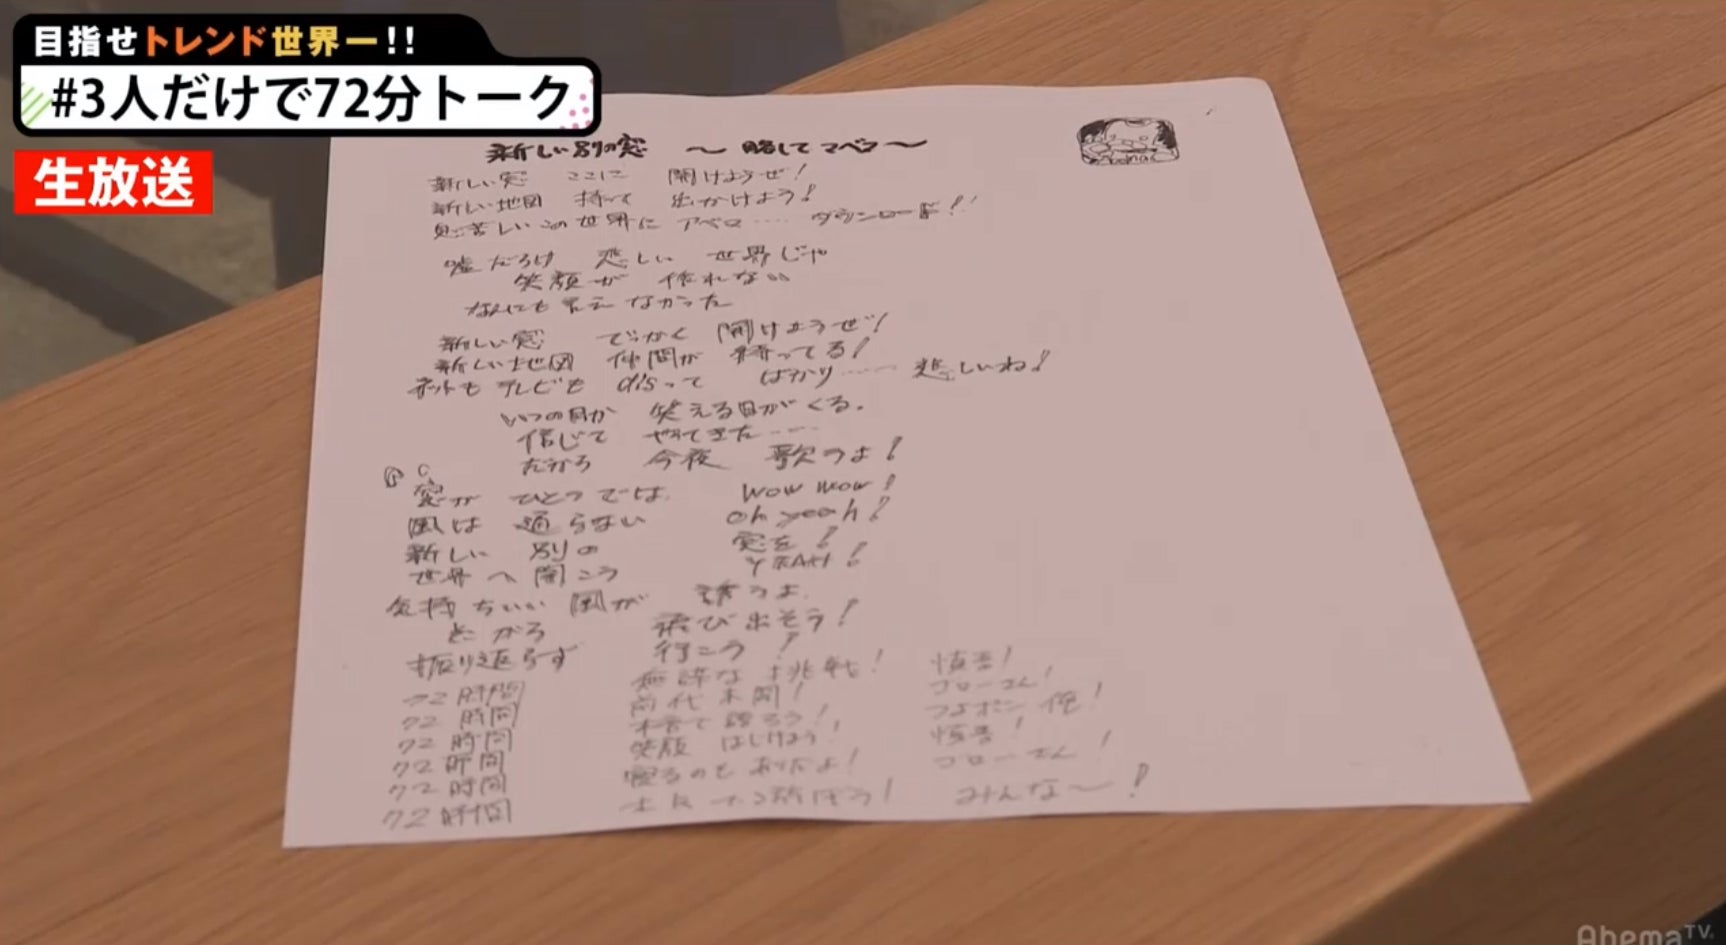 目指せトレンド世界一!!
#3人だけで72分トーク
生放送
新しい別の窓 〜略してマベつ〜
新しい窓 ここに 開けようぜ!
新しい地図 持って 出かけよう!
息苦しいこの世界に アベマ‥‥ ダウンロード!!
嘘だろけ 悲しい 世界じゃ
笑顔が 作れない
なんにも言えなかった
新しい窓 でっかく 開けようぜ!
新しい地図 仲間が 待ってる!
ネットもテレビも disって ばかり‥‥ 悲しいね!
いつの日か 笑える日がくる.
信じて やってきた‥‥
だから 今夜 歌うよ!
窓が ひとつでは WOW WOW!
風は 通らない Oh yeah!
新しい 別の 窓を!
世界へ開こう YEAH!
気持ちいい 風が 誘うよ.
とこから 飛び出そう!
振り返らず 行こう!
72時間 無謀な挑戦! 慎吾!
72時間 前代未聞! ゴローさん!
72時間 本音で語ろう! つよポン 俺!
72時間 笑顔 はじけよう! 慎吾!
72時間 寝るのもありだよ! ゴローさん!
72時間 みんな〜!
AbemaTV.